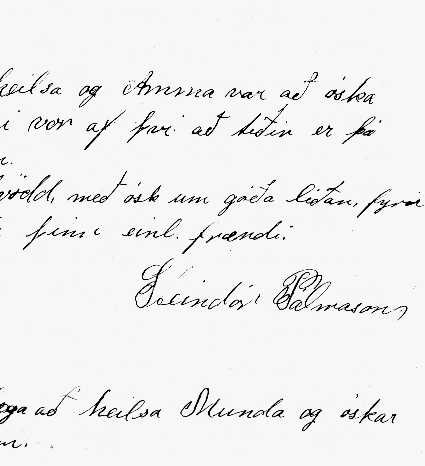 heilsa og Amma var að óska
i vor af því að tíðin er þá
n.
kvödd, með ósk um góða líðan, fyrir
þinn einl. frændi.
Steindór Pálmason
að heilsa Munda og óskar
m.